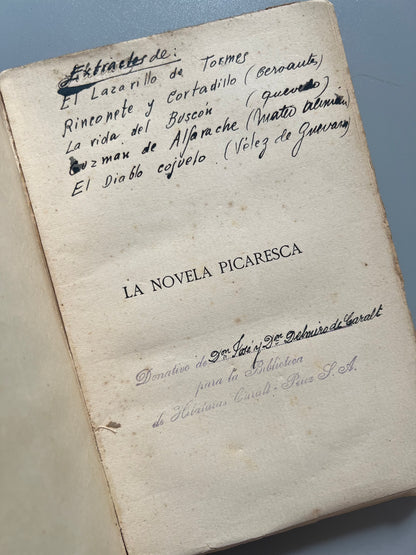 Extractos de:
El Lazarillo de Tormes
Rinconete y Cortadillo (Cervantes)
La vida del Buscón (Quevedo)
Guzman de Alfarache (Mateo Alemán)
El Diablo cojuelo (Vélez de Guevara)
LA NOVELA PICARESCA
Donativo de Dn José y Dn Delmiro de Caralt
para la Biblioteca
de Hilaturas Caralt-Perez S. A.